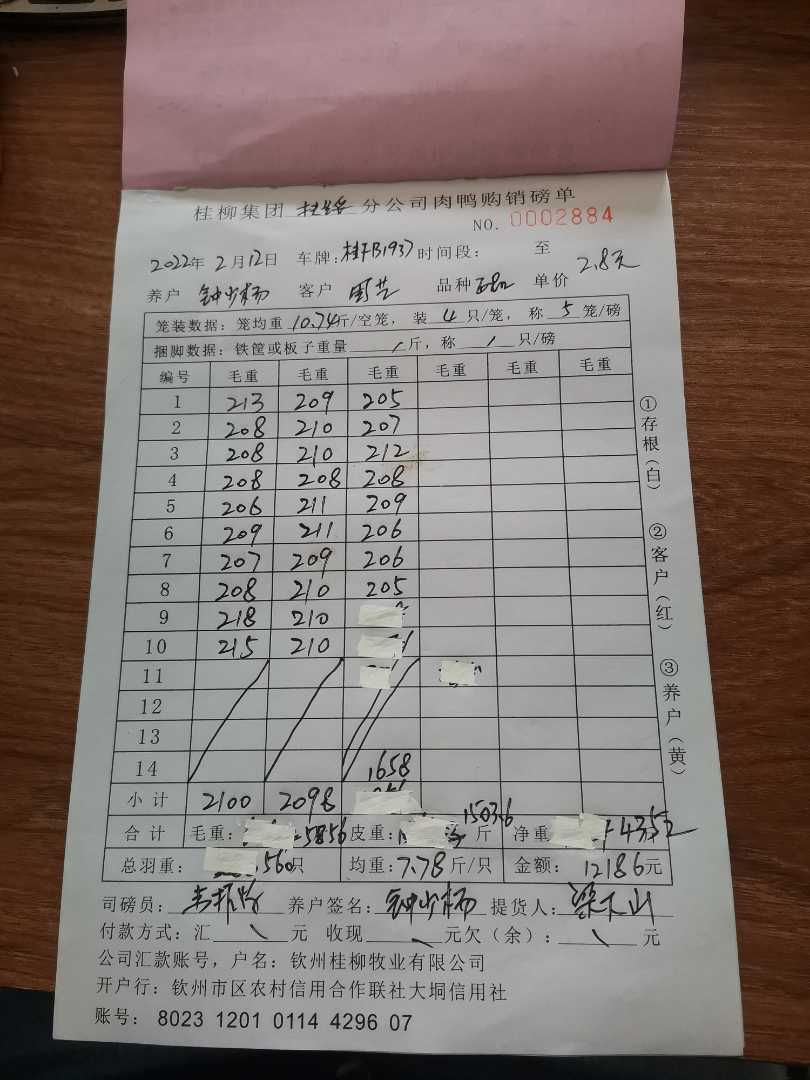 桂柳集团 分公司肉鸭购销磅单
NO. 0002884
2022年 2月12日 车牌:桂FB1937 时间段: 至
养户 钟少杨 客户 品种 单价 2.8元
笼装数据: 笼均重 10.74斤/空笼, 装 4 只/笼, 称 5 笼/磅
捆脚数据: 铁筐或板子重量 / 斤, 称 / 只/磅
编号 毛重 毛重 毛重 毛重 毛重 毛重
1 213 209 205
2 208 210 207
3 208 210 212
4 208 208 208
5 206 211 209
6 209 211 206
7 207 209 206
8 208 210 205
9 218 210
10 215 210
11
12
13
14 1658
小计 2100 2098
合计 毛重: 5856 皮重: 1503.6 斤 净重 4352
总羽重: 560只 均重: 7.78 斤/只 金额: 12186元
司磅员: 养户签名: 钟少杨 提货人: 梁大山
付款方式: 汇 \ 元 收现 \ 元欠(余): \ 元
公司汇款账号, 户名: 钦州桂柳牧业有限公司
开户行: 钦州市区农村信用合作联社大垌信用社
账号: 8023 1201 0114 4296 07
①存根(白)
②客户(红)
③养户(黄)